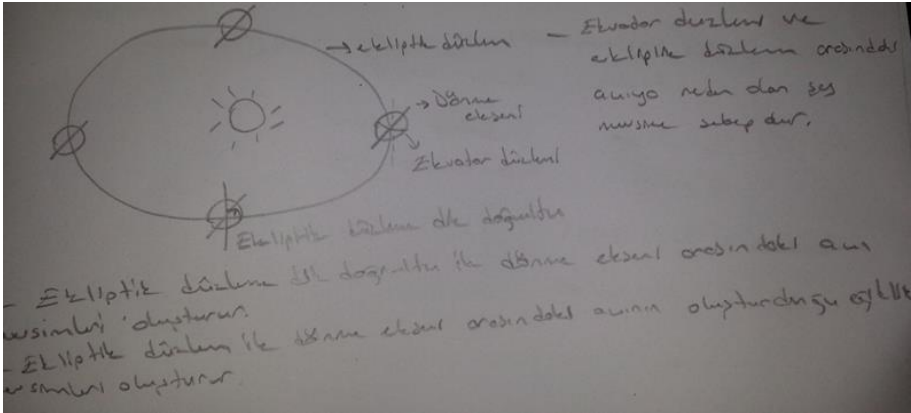 → ekliptik düzlem
→ Dönme
ekseni
Ekvator düzlemi
Ekliptik düzleme dik doğrultu
- Ekvator duzlemi ve
ekliptik düzlem arasındaki
açıya neden olan şey
mevsime sebep dur.
- Ekliptik düzleme dik doğrultu ile dönme ekseni arasındaki açı
mevsimleri oluşturur.
- Ekliptik düzlem ile dönme ekseni arasındaki açının oluşturduğu eğiklik
mevsimleri oluşturur.